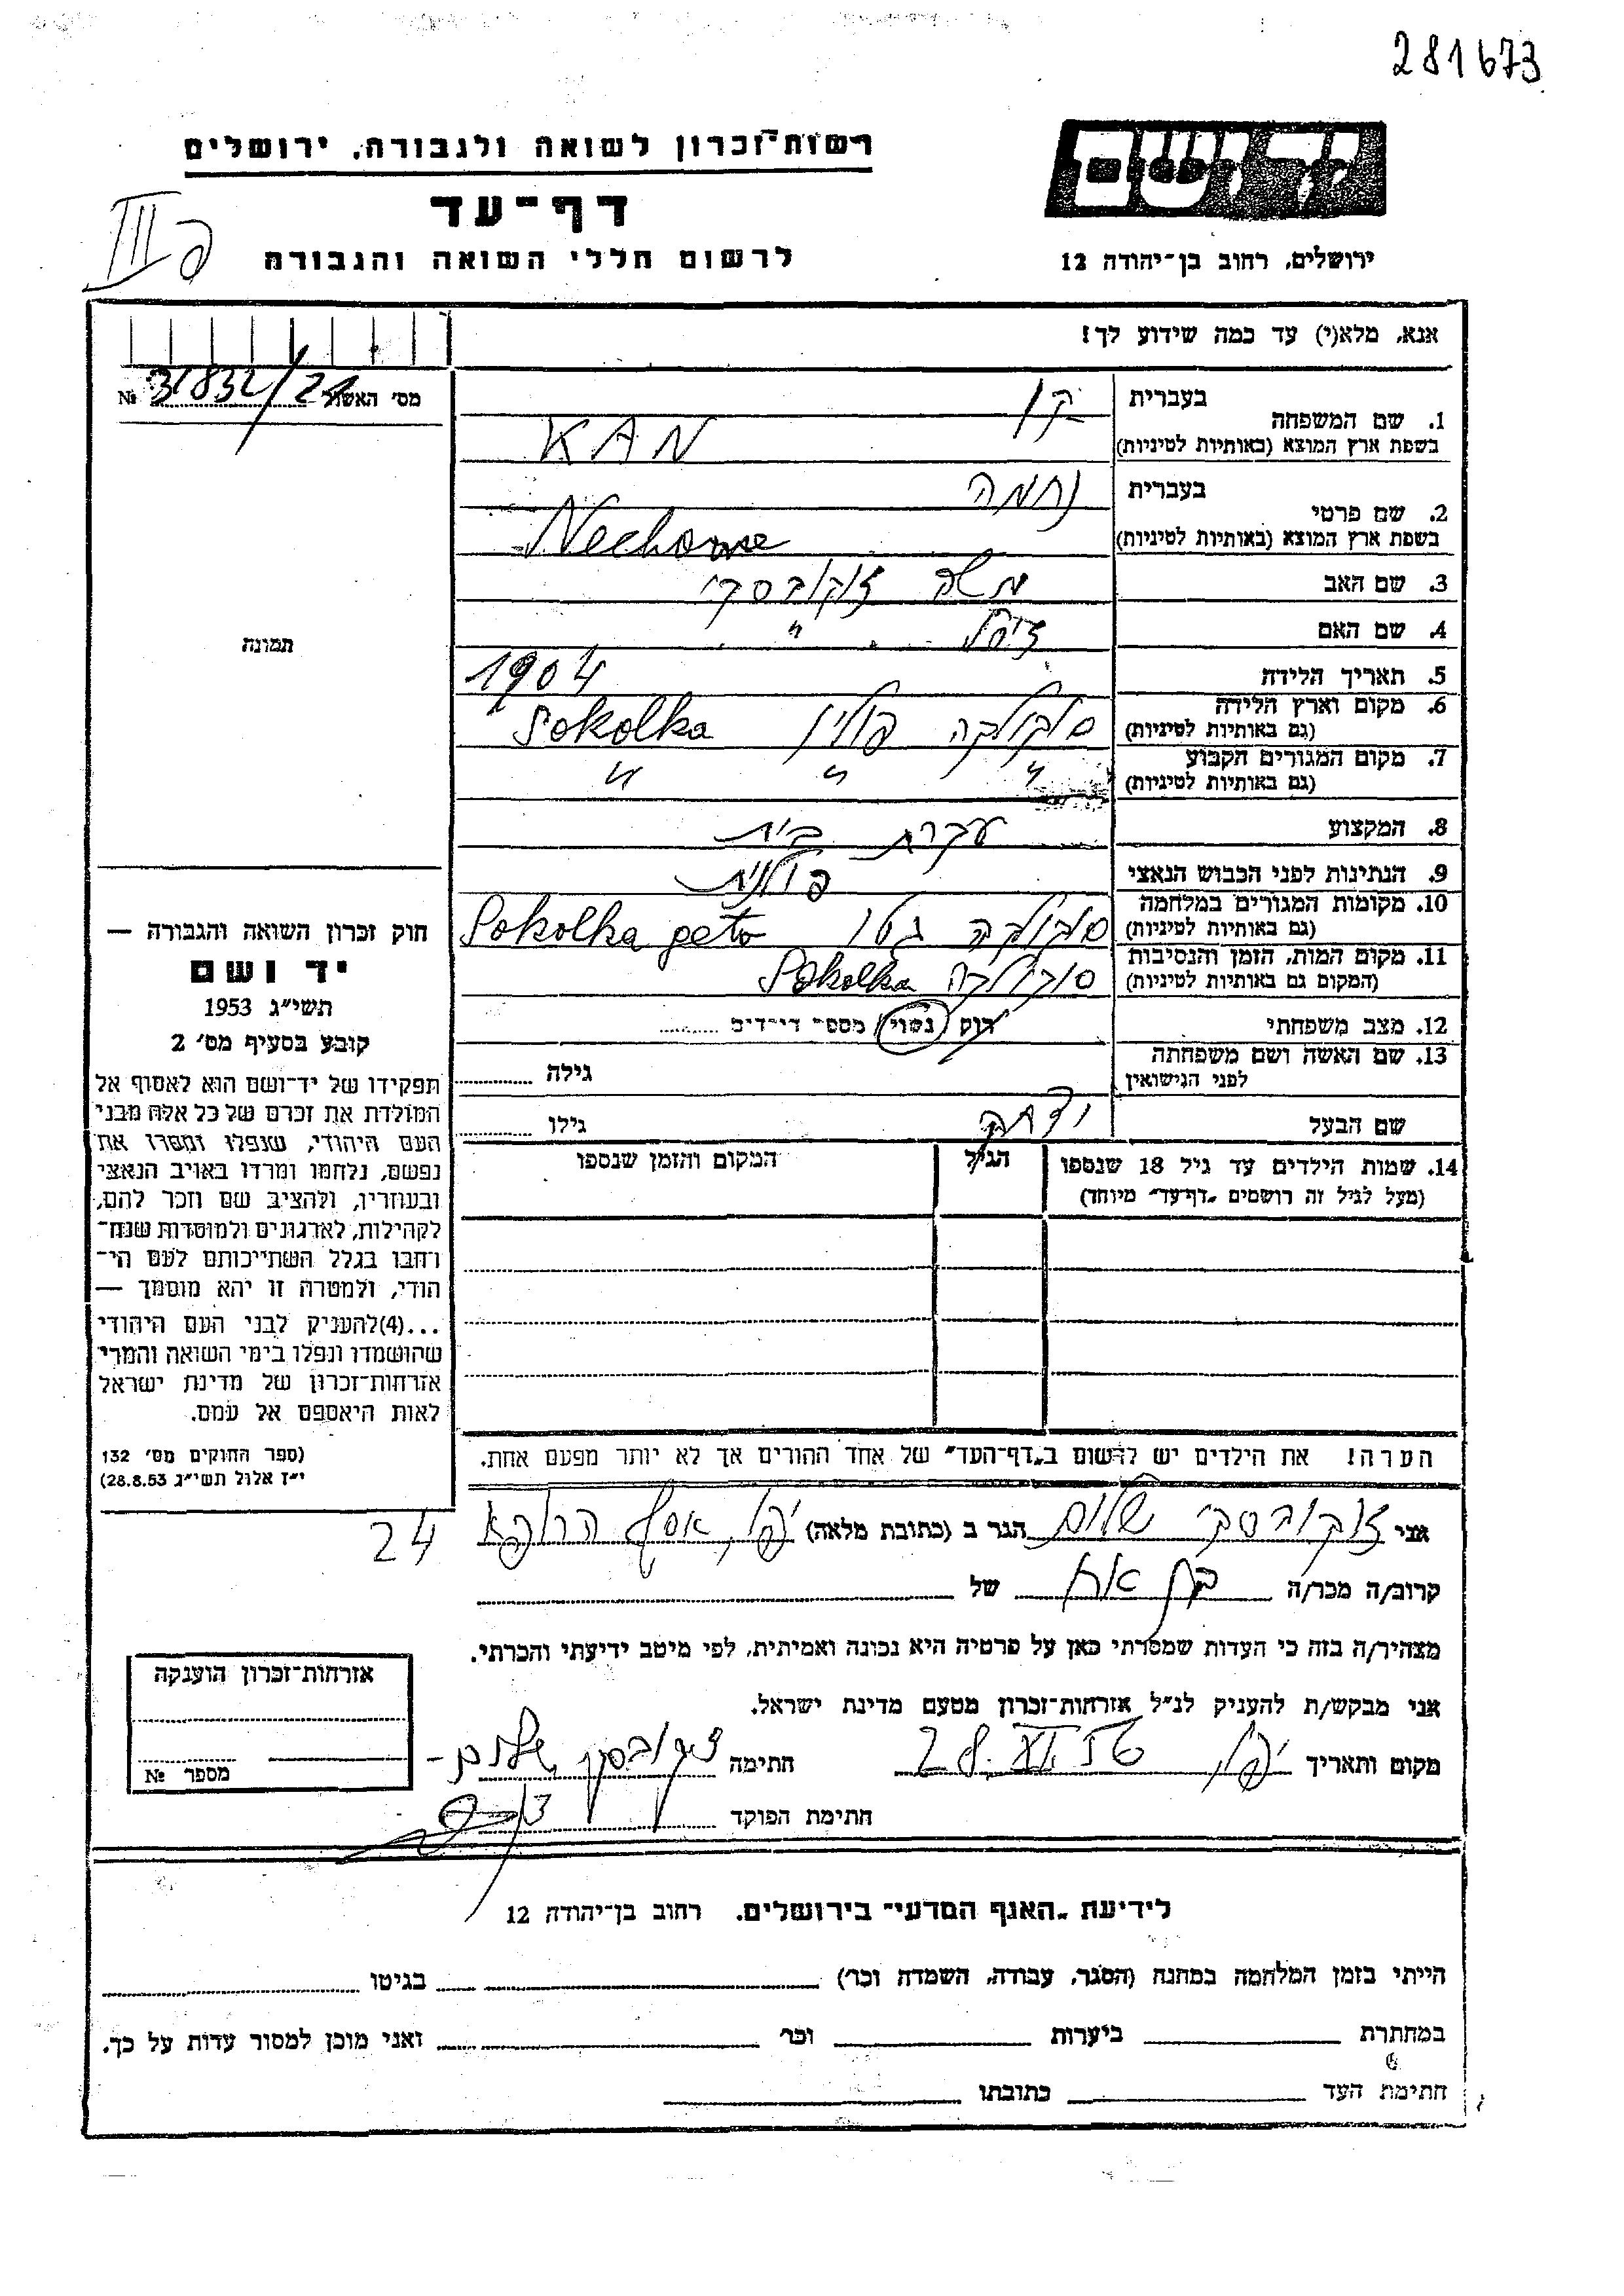 281673
רשות־זכרון לשואה ולגבורה, ירושלים
יד ושם
דף־עד
III
לרשום חללי השואה והגבורה
ירושלים, רחוב בן־יהודה 12
אנא, מלא(י) עד כמה שידוע לך!
מס׳ האשור 31832/21 №
1. שם המשפחה
בעברית קן
בשפת ארץ המוצא (באותיות לטיניות) KAN
2. שם פרטי
בעברית נחמה
בשפת ארץ המוצא (באותיות לטיניות) Nechome
3. שם האב משה זקובסקי
4. שם האם ״
5. תאריך הלידה 1904
6. מקום וארץ הלידה סוקולקה פולין Sokolka
(גם באותיות לטיניות)
7. מקום המגורים הקבוע ״ ״ ״
(גם באותיות לטיניות)
8. המקצוע עקרת בית
9. הנתינות לפני הכבוש הנאצי פולנית
10. מקומות המגורים במלחמה סוקולקה גטו Sokolka geto
(גם באותיות לטיניות)
11. מקום המות, הזמן והנסיבות סוקולקה Sokolka
(המקום גם באותיות לטיניות)
12. מצב משפחתי רווק (נשוי) מספר ילדים
13. שם האשה ושם משפחתה
לפני הנישואין
גילה
שם הבעל
גילו
14. שמות הילדים עד גיל 18 שנספו
(מעל לגיל זה רושמים „דף־עד״ מיוחד)
הגיל
המקום והזמן שנספו
תמונה
חוק זכרון השואה והגבורה —
יד ושם
תשי״ג 1953
קובע בסעיף מס׳ 2
תפקידו של יד־ושם הוא לאסוף אל
המולדת את זכרם של כל אלה מבני
העם היהודי, שנפלו ומסרו את
נפשם, נלחמו ומרדו באויב הנאצי
ובעוזריו, ולהציב שם וזכר להם,
לקהילות, לארגונים ולמוסדות שנח־
רחבו בגלל השתייכותם לעם הי־
הודי, ולמטרה זו יהא מוסמך —
...(4)להעניק לבני העם היהודי
שהושמדו ונפלו בימי השואה והמרי
אזרחות־זכרון של מדינת ישראל
לאות היאספם אל עמם.
(ספר החוקים מס׳ 132
י״ז אלול תשי״ג 28.8.53)
הערה! את הילדים יש לרשום ב„דף־העד״ של אחד ההורים אך לא יותר מפעם אחת.
אני זקובסקי שלום הגר ב (כתובת מלאה) יפו, אסף הרופא 24
קרוב/ה מכר/ה בן אח של
מצהיר/ה בזה כי העדות שמסרתי כאן על פרטיה היא נכונה ואמיתית, לפי מיטב ידיעתי והכרתי.
אני מבקש/ת להעניק לנ״ל אזרחות־זכרון מטעם מדינת ישראל.
מקום ותאריך יפו, חתימה זקובסקי שלום
חתימת הפוקד
אזרחות־זכרון הוענקה
מספר №
לידיעת „האגף המדעי״ בירושלים. רחוב בן־יהודה 12
הייתי בזמן המלחמה במחנה (הסגר, עבודה, השמדה וכר׳) בגיטו
במחתרת ביערות וכר׳ ואני מוכן למסור עדות על כך.
חתימת העד כתובתו